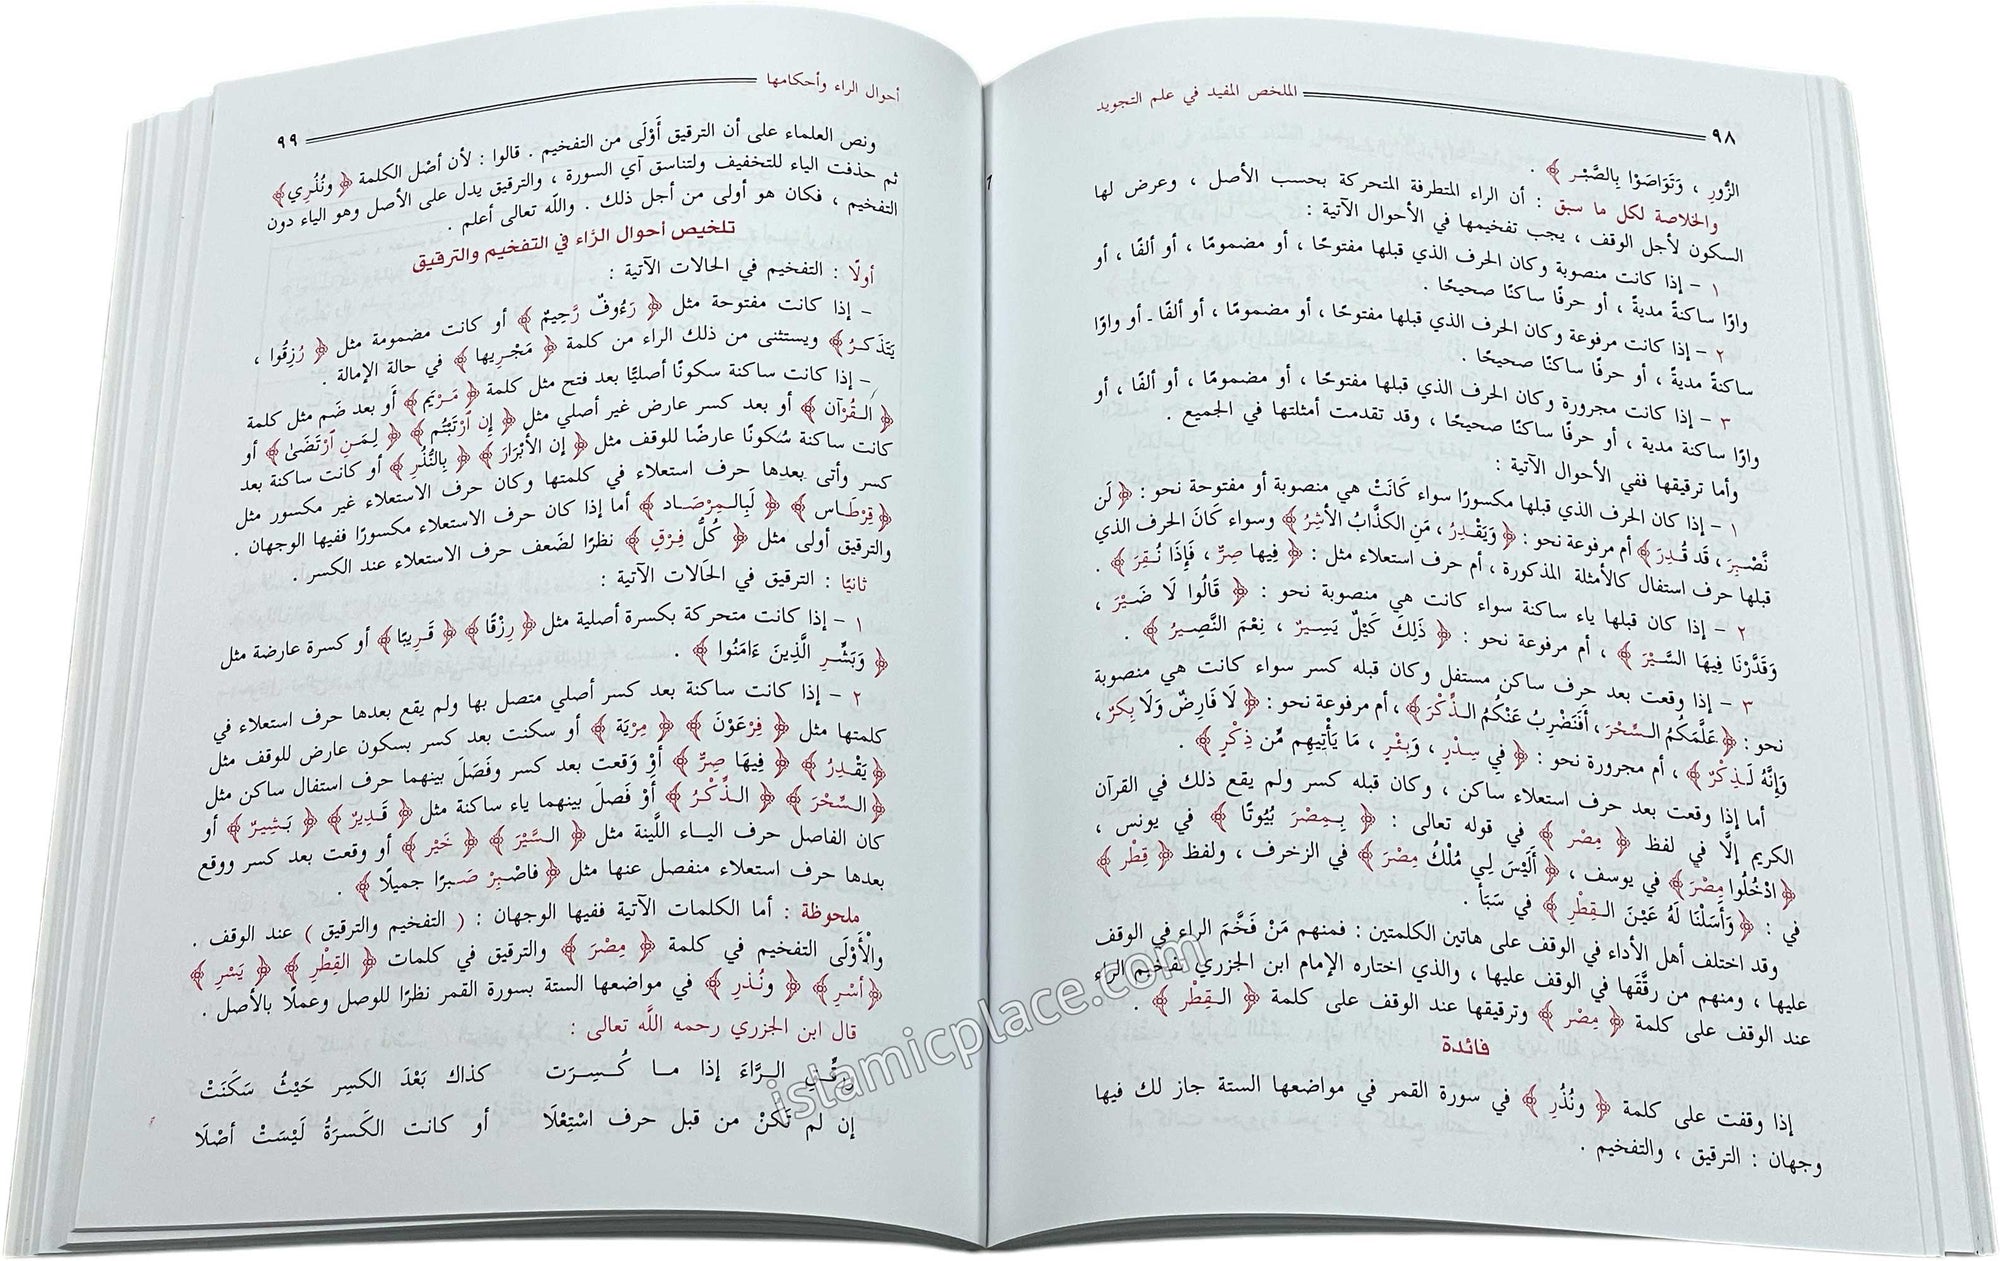 الملخص المفيد في علم التجويد
٩٨
الزُّورِ ، وَتَوَاصَوْا بِالصَّبْرِ ﴾ .
والخلاصة لكل ما سبق : أن الراء المتطرفة المتحركة بحسب الأصل ، وعرض لها
السكون لأجل الوقف ، يجب تفخيمها في الأحوال الآتية :
١ – إذا كانت منصوبة وكان الحرف الذي قبلها مفتوحًا ، أو مضمومًا ، أو ألفًا ، أو
واوًا ساكنةً مديةً ، أو حرفًا ساكنًا صحيحًا .
٢ – إذا كانت مرفوعة وكان الحرف الذي قبلها مفتوحًا ، أو مضمومًا ، أو ألفًا . أو واوًا
ساكنةً مديةً ، أو حرفًا ساكنًا صحيحًا .
٣ – إذا كانت مجرورة وكان الحرف الذي قبلها مفتوحًا ، أو مضمومًا ، أو ألفًا ، أو
واوًا ساكنة مدية ، أو حرفًا ساكنًا صحيحًا ، وقد تقدمت أمثلتها في الجميع .
وأما ترقيقها ففي الأحوال الآتية :
١ – إذا كان الحرف الذي قبلها مكسورًا سواء كَانَتْ هي منصوبة أو مفتوحة نحو : ﴿ لَن
نَّصْبِرَ ، قَد قُدِرَ ﴾ أم مرفوعة نحو : ﴿ وَيَقْدِرُ ، مَنِ الكذَّابُ الأَشِرُ ﴾ وسواء كَانَ الحرف الذي
قبلها حرف استفال كالأمثلة المذكورة ، أم حرف استعلاء مثل : ﴿ فِيها صِرٌّ ، فَإِذَا نُقِرَ ﴾ .
٢ – إذا كان قبلها ياء ساكنة سواء كانت هي منصوبة نحو : ﴿ قَالُوا لَا ضَيْرَ ،
وَقَدَّرْنَا فِيهَا السَّيْرَ ﴾ ، أم مرفوعة نحو : ﴿ ذَلِكَ كَيْلٌ يَسِيرٌ ، نِعْمَ النَّصِيرُ ﴾ .
٣ – إذا وقعت بعد حرف ساكن مستفل وكان قبله كسر سواء كانت هي منصوبة
نحو : ﴿ عَلَّمَكُمُ السِّحْرَ ، أَفَنَضْرِبُ عَنْكُمُ الذِّكْرَ ﴾ ، أم مرفوعة نحو : ﴿ لَا فَارِضٌ وَلَا بِكرٌ ،
وَإِنَّهُ لَذِكْرٌ ﴾ ، أم مجرورة نحو : ﴿ فِي سِدْرٍ ، وَبِئْرٍ ، مَا يَأْتِيهِم مِّن ذِكْرٍ ﴾ .
أما إذا وقعت بعد حرف استعلاء ساكن ، وكان قبله كسر ولم يقع ذلك في القرآن
الكريم إلَّا في لفظ ﴿ مِصْر ﴾ في قوله تعالى : ﴿ بِمِصْرَ بُيُوتًا ﴾ في يونس ،
﴿ ادْخُلُوا مِصْرَ ﴾ في يوسف ، ﴿ أَلَيْسَ لِي مُلْكُ مِصْرَ ﴾ في الزخرف ، ولفظ ﴿ قِطْرِ ﴾
في : ﴿ وَأَسَلْنَا لَهُ عَيْنَ القِطْرِ ﴾ في سَبَأ .
وقد اختلف أهل الأداء في الوقف على هاتين الكلمتين : فمنهم مَنْ فَخَّمَ الراء في الوقف
عليها ، ومنهم من رقَّقَها في الوقف عليها ، والذي اختاره الإمام ابن الجزري تفخيم الراء
عند الوقف على كلمة ﴿ مِصْر ﴾ وترقيقها عند الوقف على كلمة ﴿ القِطْر ﴾ .
فائدة
إذا وقفت على كلمة ﴿ ونُذُرِ ﴾ في سورة القمر في مواضعها الستة جاز لك فيها
وجهان : الترقيق ، والتفخيم .
أحوال الراء وأحكامها
٩٩
ونص العلماء على أن الترقيق أَوْلَى من التفخيم . قالوا : لأن أصْل الكلمة ﴿ ونُذُرِي ﴾
ثم حذفت الياء للتخفيف ولتناسق آي السورة ، والترقيق يدل على الأصل وهو الياء دون
التفخيم ، فكان هو أولى من أجل ذلك . واللّه تعالى أعلم .
تلخيص أحوال الرَّاء في التفخيم والترقيق
أولًا : التفخيم في الحالات الآتية :
– إذا كانت مفتوحة مثل ﴿ رَءُوفٌ رَّحِيمٌ ﴾ أو كانت مضمومة مثل ﴿ رُزِقُوا ،
يَتَذَكرُ ﴾ ويستثنى من ذلك الراء من كلمة ﴿ مَجْرِيها ﴾ في حالة الإمالة .
– إذا كانت ساكنة سكونًا أصليًّا بعد فتح مثل كلمة ﴿ مَرْيَم ﴾ أو بعد ضَم مثل كلمة
﴿ القُرْآن ﴾ أو بعد كسر عارض غير أصلي مثل ﴿ إِن ٱرْتَبْتُم ﴾ ﴿ لِمَنِ ٱرْتَضَىٰ ﴾ أو
كانت ساكنة سُكونًا عارضًا للوقف مثل ﴿ إن الأبْرَارَ ﴾ ﴿ بِالنُّذُرِ ﴾ أو كانت ساكنة بعد
كسر وأتى بعدها حرف استعلاء في كلمتها وكان حرف الاستعلاء غير مكسور مثل
﴿ قِرطَاس ﴾ ﴿ لَبِالمِرْصَاد ﴾ أما إذا كان حرف الاستعلاء مكسورًا ففيها الوجهان .
والترقيق أولى مثل ﴿ كُلُّ فِرْقٍ ﴾ نظرًا لضَعف حرف الاستعلاء عند الكسر .
ثانيًا : الترقيق في الحَالات الآتية :
١ – إذا كانت متحركة بكسرة أصلية مثل ﴿ رِزْقًا ﴾ ﴿ قَرِيبًا ﴾ أو كسرة عارضة مثل
﴿ وَبَشِّرِ الَّذِينَ ءَامَنُوا ﴾ .
٢ – إذا كانت ساكنة بعد كسر أصلي متصل بها ولم يقع بعدها حرف استعلاء في
كلمتها مثل ﴿ فِرْعَوْنَ ﴾ ﴿ مِرْيَة ﴾ أو سكنت بعد كسر بسكون عارض للوقف مثل
﴿ يَقْدِرُ ﴾ ﴿ فِيهَا صِرٌّ ﴾ أَوْ وَقعت بعد كسر وفَصَلَ بينهما حرف استفال ساكن مثل
﴿ السِّحْرَ ﴾ ﴿ الذِّكْرُ ﴾ أَوْ فَصلَ بينهما ياء ساكنة مثل ﴿ قَدِيرٌ ﴾ ﴿ بَشِيرٌ ﴾ أو
كان الفاصل حرف الياء اللَّينة مثل ﴿ السَّيْرَ ﴾ ﴿ خَيْر ﴾ أو وقعت بعد كسر ووقع
بعدها حرف استعلاء منفصل عنها مثل ﴿ فاصْبِرْ صَبرًا جميلًا ﴾ .
ملحوظة : أما الكلمات الآتية ففيها الوجهان : ( التفخيم والترقيق ) عند الوقف .
والْأَوْلَى التفخيم في كلمة ﴿ مِصْرَ ﴾ والترقيق في كلمات ﴿ القِطْرِ ﴾ ﴿ يَسْرِ ﴾
﴿ أسْرِ ﴾ ﴿ ونُذرِ ﴾ في مواضعها الستة بسورة القمر نظرًا للوصل وعملًا بالأصل .
قال ابن الجزري رحمه اللَّه تعالى :
ورقِّقِ الرَّاءَ إذا ما كُسِرَت كذاك بَعْدَ الكسِر حَيْثُ سَكَنَتْ
إن لم تَكنْ من قبل حرف اسْتِعْلَا أو كانت الكَسرَةُ لَيْسَتْ أصْلَا
islamicplace.com